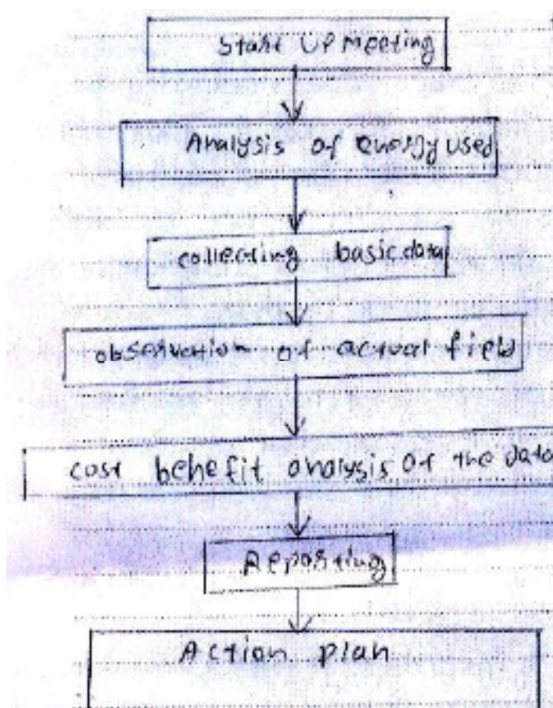 Start UP Meeting
Analysis of energy used
collecting basic data
observation of actual field
cost benefit analysis of the data
Reporting
Action plan